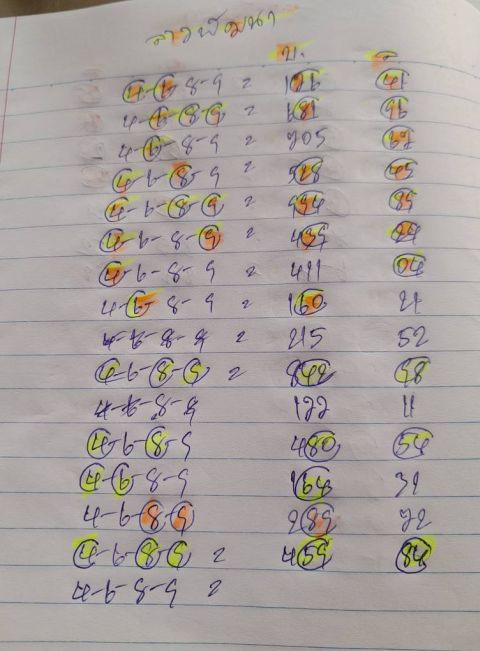 ลาวพัฒนา
บ. ล
4-6-8-9 = 126 41
4-6-8-9 = 681 96
4-6-8-9 = 705 67
4-6-8-9 = 528 45
4-6-8-9 = 994 85
4-6-8-9 = 439 24
4-6-8-9 = 411 04
4-6-8-9 = 160 21
4-6-8-9 = 215 52
4-6-8-9 = 842 98
4-6-8-9 122 11
4-6-8-9 480 54
4-6-8-9 164 39
4-6-8-9 289 72
4-6-8-9 = 459 84
4-6-8-9 =